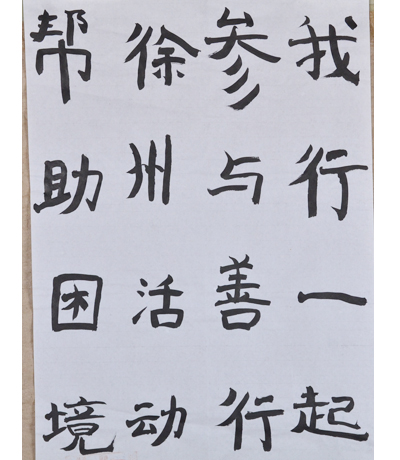 我行一起
参与善行
徐州活动
帮助困境